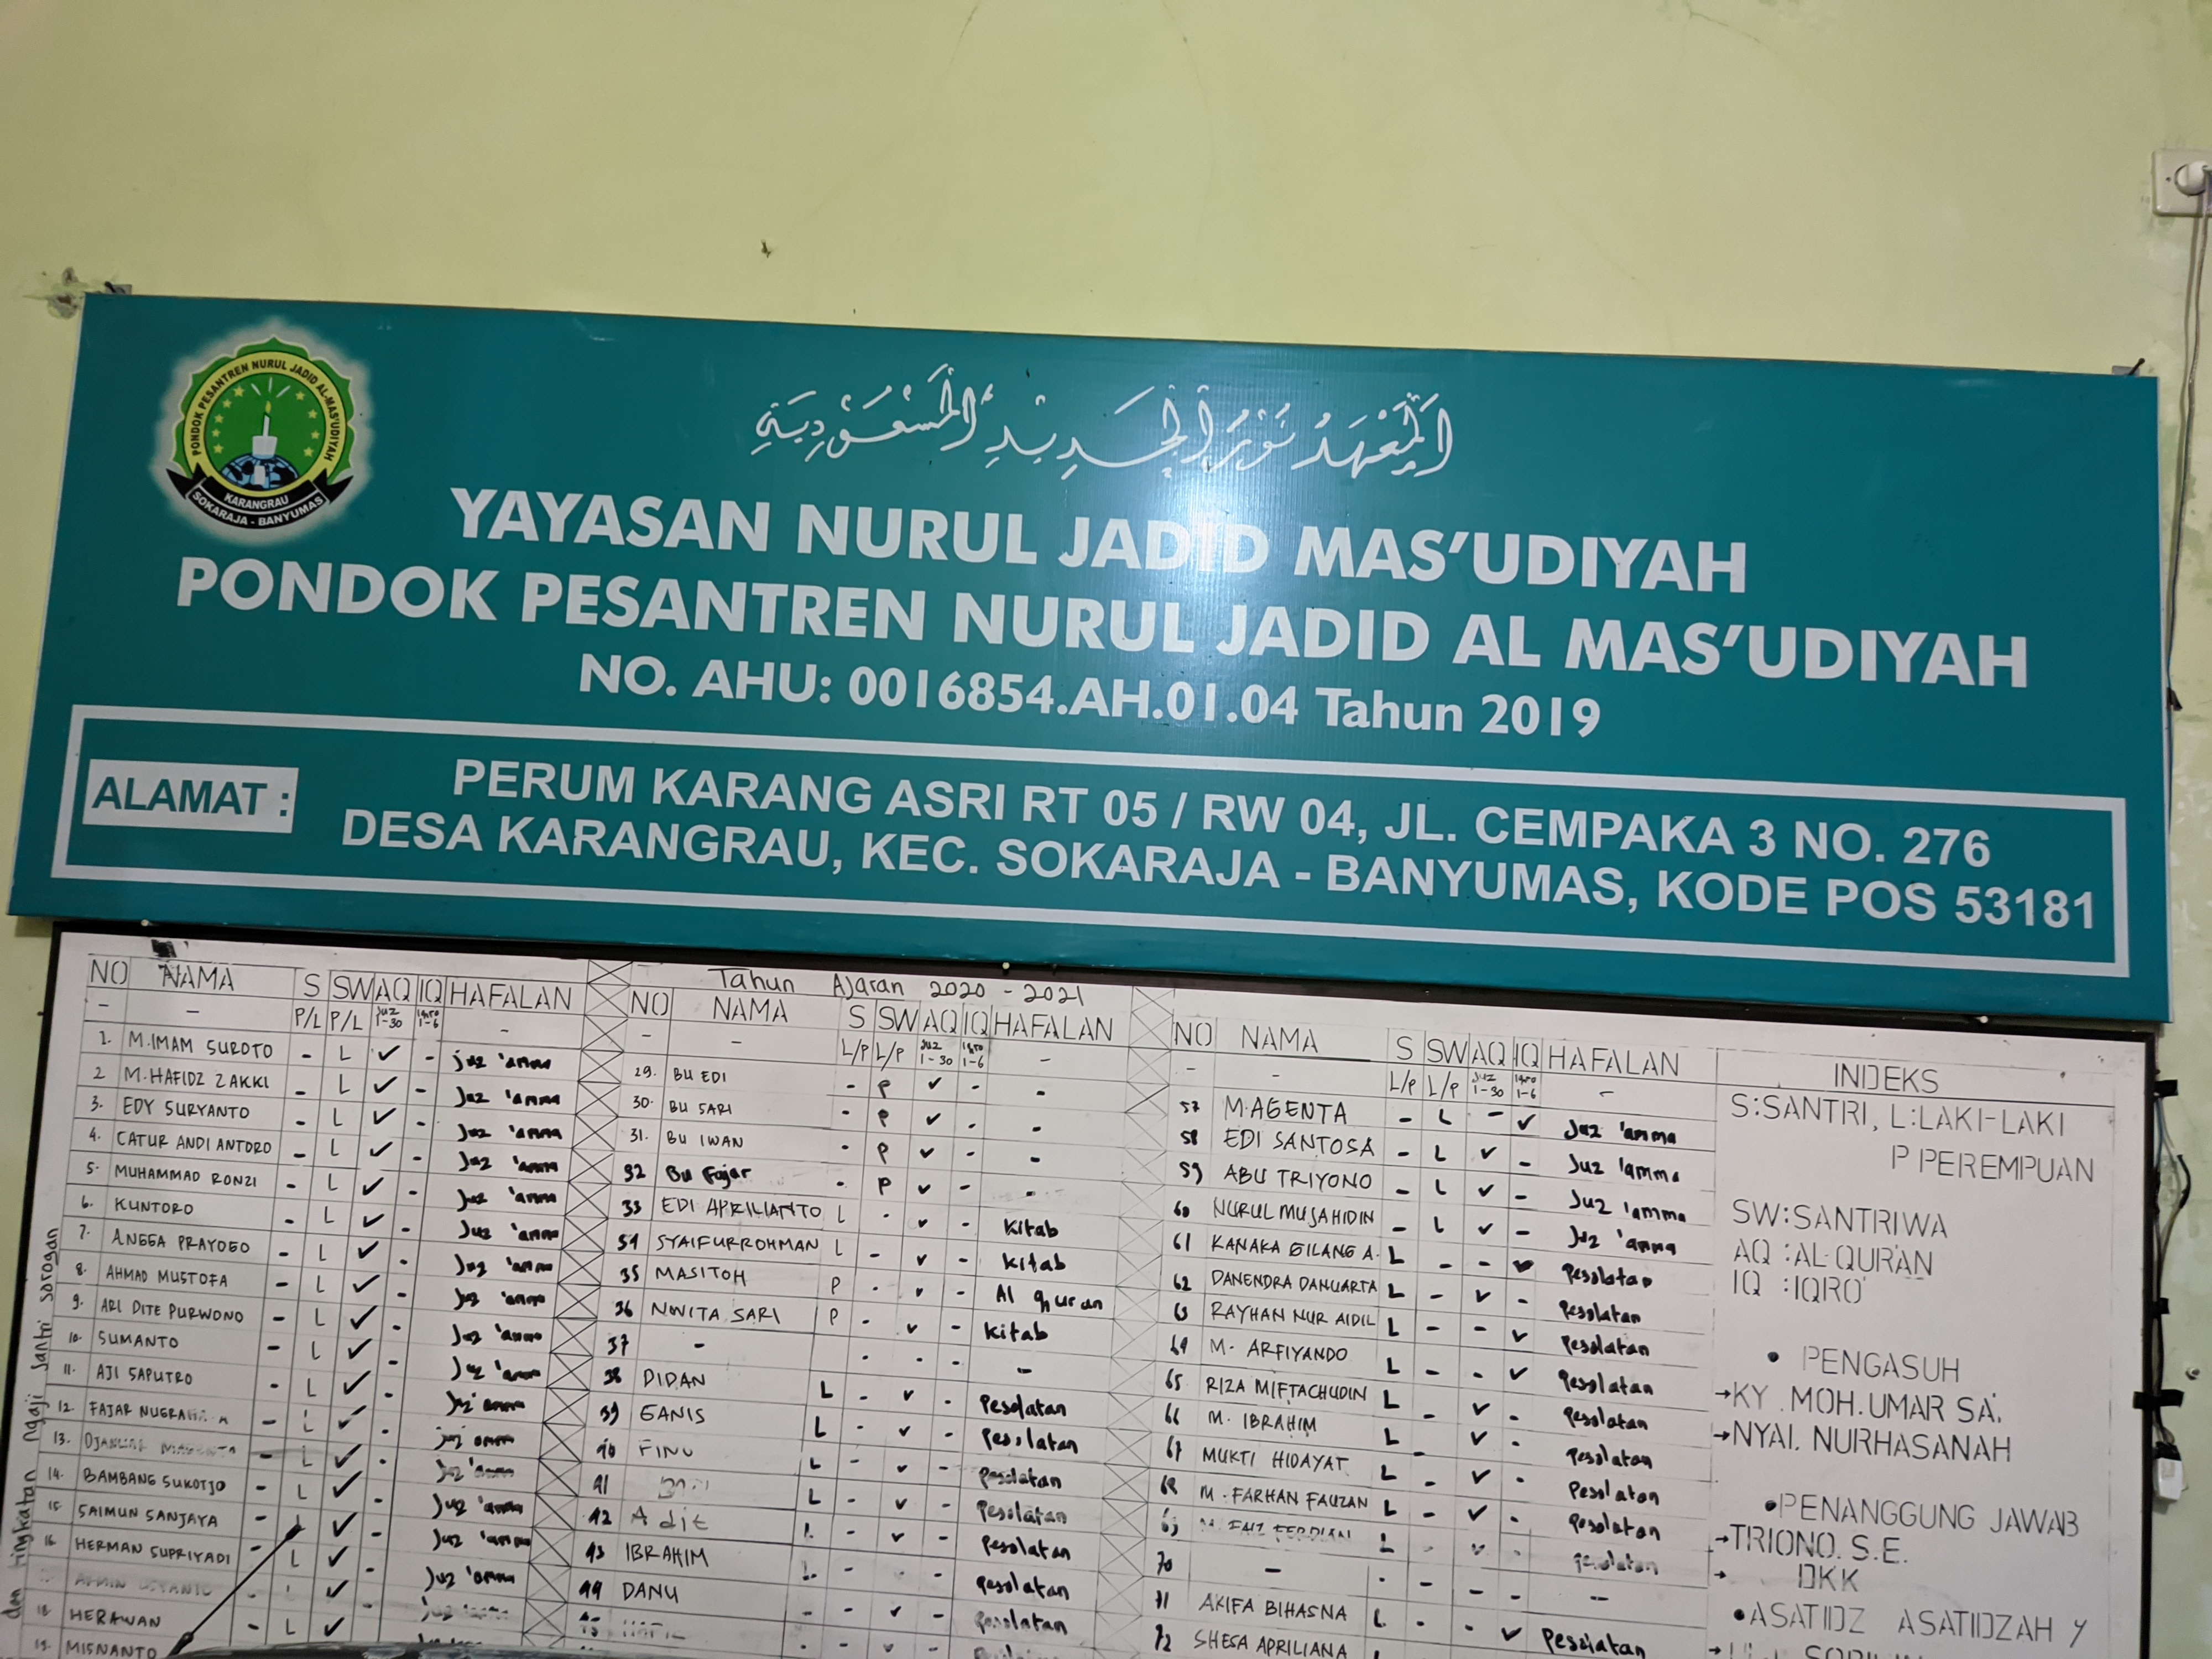 PONDOK PESANTREN NURUL JADID AL-MAS'UDIYAH
KARANGRAU
SOKARAJA - BANYUMAS
المَعْهَدُ نُوْرُ الْجَدِيْدِ الْمَسْعُوْدِيَّةِ
YAYASAN NURUL JADID MAS'UDIYAH
PONDOK PESANTREN NURUL JADID AL MAS'UDIYAH
NO. AHU: 0016854.AH.01.04 Tahun 2019
ALAMAT :
PERUM KARANG ASRI RT 05 / RW 04, JL. CEMPAKA 3 NO. 276
DESA KARANGRAU, KEC. SOKARAJA - BANYUMAS, KODE POS 53181
Tahun Ajaran 2020 - 2021
dan tingkatan Ngaji Santri sorogan
NO NAMA S SW AQ IQ HAFALAN
- - P/L P/L Juz 1-30 Iqro 1-6 -
1. M.IMAM SUROTO - L ✓ - juz 'amma
2 M.HAFIDZ ZAKKI - L ✓ - Juz 'amma
3. EDY SURYANTO - L ✓ - Juz 'amma
4. CATUR ANDI ANTORO - L ✓ - Juz 'amma
5. MUHAMMAD RONZI - L ✓ - Juz 'amma
6. KUNTORO - L ✓ - Juz 'amma
7. ANGGA PRAYOGO - L ✓ - Juz 'amma
8. AHMAD MUSTOFA - L ✓ - Juz 'amma
9. ARI DITE PURWONO - L ✓ - Juz 'amma
10. SUMANTO - L ✓ - Juz 'amma
11. AJI SAPUTRO - L ✓ - Juz 'amma
12. FAJAR - L ✓ - Juz 'amma
13. - L ✓ - Juz 'amma
14. BAMBANG SUKOTJO - L ✓ - Juz 'amma
15 SAIMUN SANJAYA - L ✓ - Juz 'amma
16 HERMAN SUPRIYADI - L ✓ - Juz 'amma
18. HERAWAN - L ✓
19. MISNANTO
NO NAMA S SW AQ IQ HAFALAN
- - L/P L/P Juz 1-30 Iqro 1-6 -
29. BU EDI - P ✓ - -
30. BU SARI - P ✓ - -
31. BU IWAN - P ✓ - -
32 Bu Fajar - P ✓ - -
33 EDI APRILIANTO L - ✓ - Kitab
34 SYAIFURROHMAN L - ✓ - Kitab
35 MASITOH P - ✓ - Al quran
36 NOVITA SARI P - ✓ - Kitab
37 - - - - -
38 DIDAN L - ✓ - Pesolatan
39 GANIS L - ✓ - Pesolatan
40 FINO L - ✓ - Pesolatan
41 L - ✓ - Pesolatan
42 Adit L - ✓ - Pesolatan
43 IBRAHIM L - - Pesolatan
44 DANU - - ✓ - Pesolatan
45
NO NAMA S SW AQ IQ HAFALAN
- - L/P L/P Juz 1-30 Iqro 1-6 -
57 M.AGENTA - L - ✓ Juz 'amma
58 EDI SANTOSA - L ✓ - Juz 'amma
59 ABU TRIYONO - L ✓ - Juz 'amma
60 NURUL MUJAHIDIN - L ✓ - Juz 'amma
61 KANAKA GILANG A. L - - ✓ Pesolatan
62 DANENDRA DANUARTA L - ✓ - Pesolatan
63 RAYHAN NUR AIDIL L - - ✓ Pesolatan
64 M. ARFIYANDO L - - ✓ Pesolatan
65 RIZA MIFTACHUDIN L - ✓ - Pesolatan
66 M. IBRAHIM L - ✓ - Pesolatan
67 MUKTI HIDAYAT L - ✓ - Pesolatan
68 M. FARHAN FAUZAN L - ✓ - Pesolatan
69 M. FAIZ FERDIAN L - ✓ - Pesolatan
70 - - - - - --
71 AKIFA BIHASNA L - - ✓ Pesolatan
72 SHESA APRILIANA
INDEKS
S:SANTRI, L:LAKI-LAKI
P PEREMPUAN
SW:SANTRIWA
AQ :AL-QURAN
IQ :IQRO'
• PENGASUH
→KY. MOH. UMAR SA'.
→NYAI. NURHASANAH
•PENANGGUNG JAWAB
→TRIONO. S.E.
→ DKK
•ASATIDZ ASATIDZAH